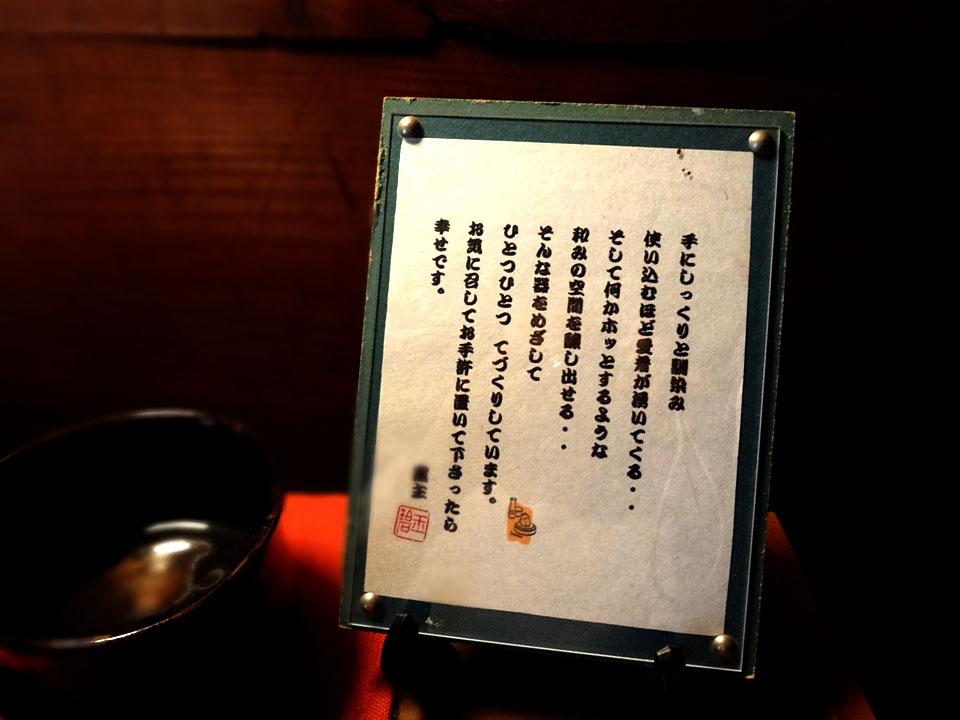 手にしっくりと馴染み
使い込むほど愛着が湧いてくる・・
そして何かホッとするような
和みの空間を醸し出せる・・
そんな器をめざして
ひとつひとつ てづくりしています。
お気に召してお手許に置いて下さったら
幸せです。